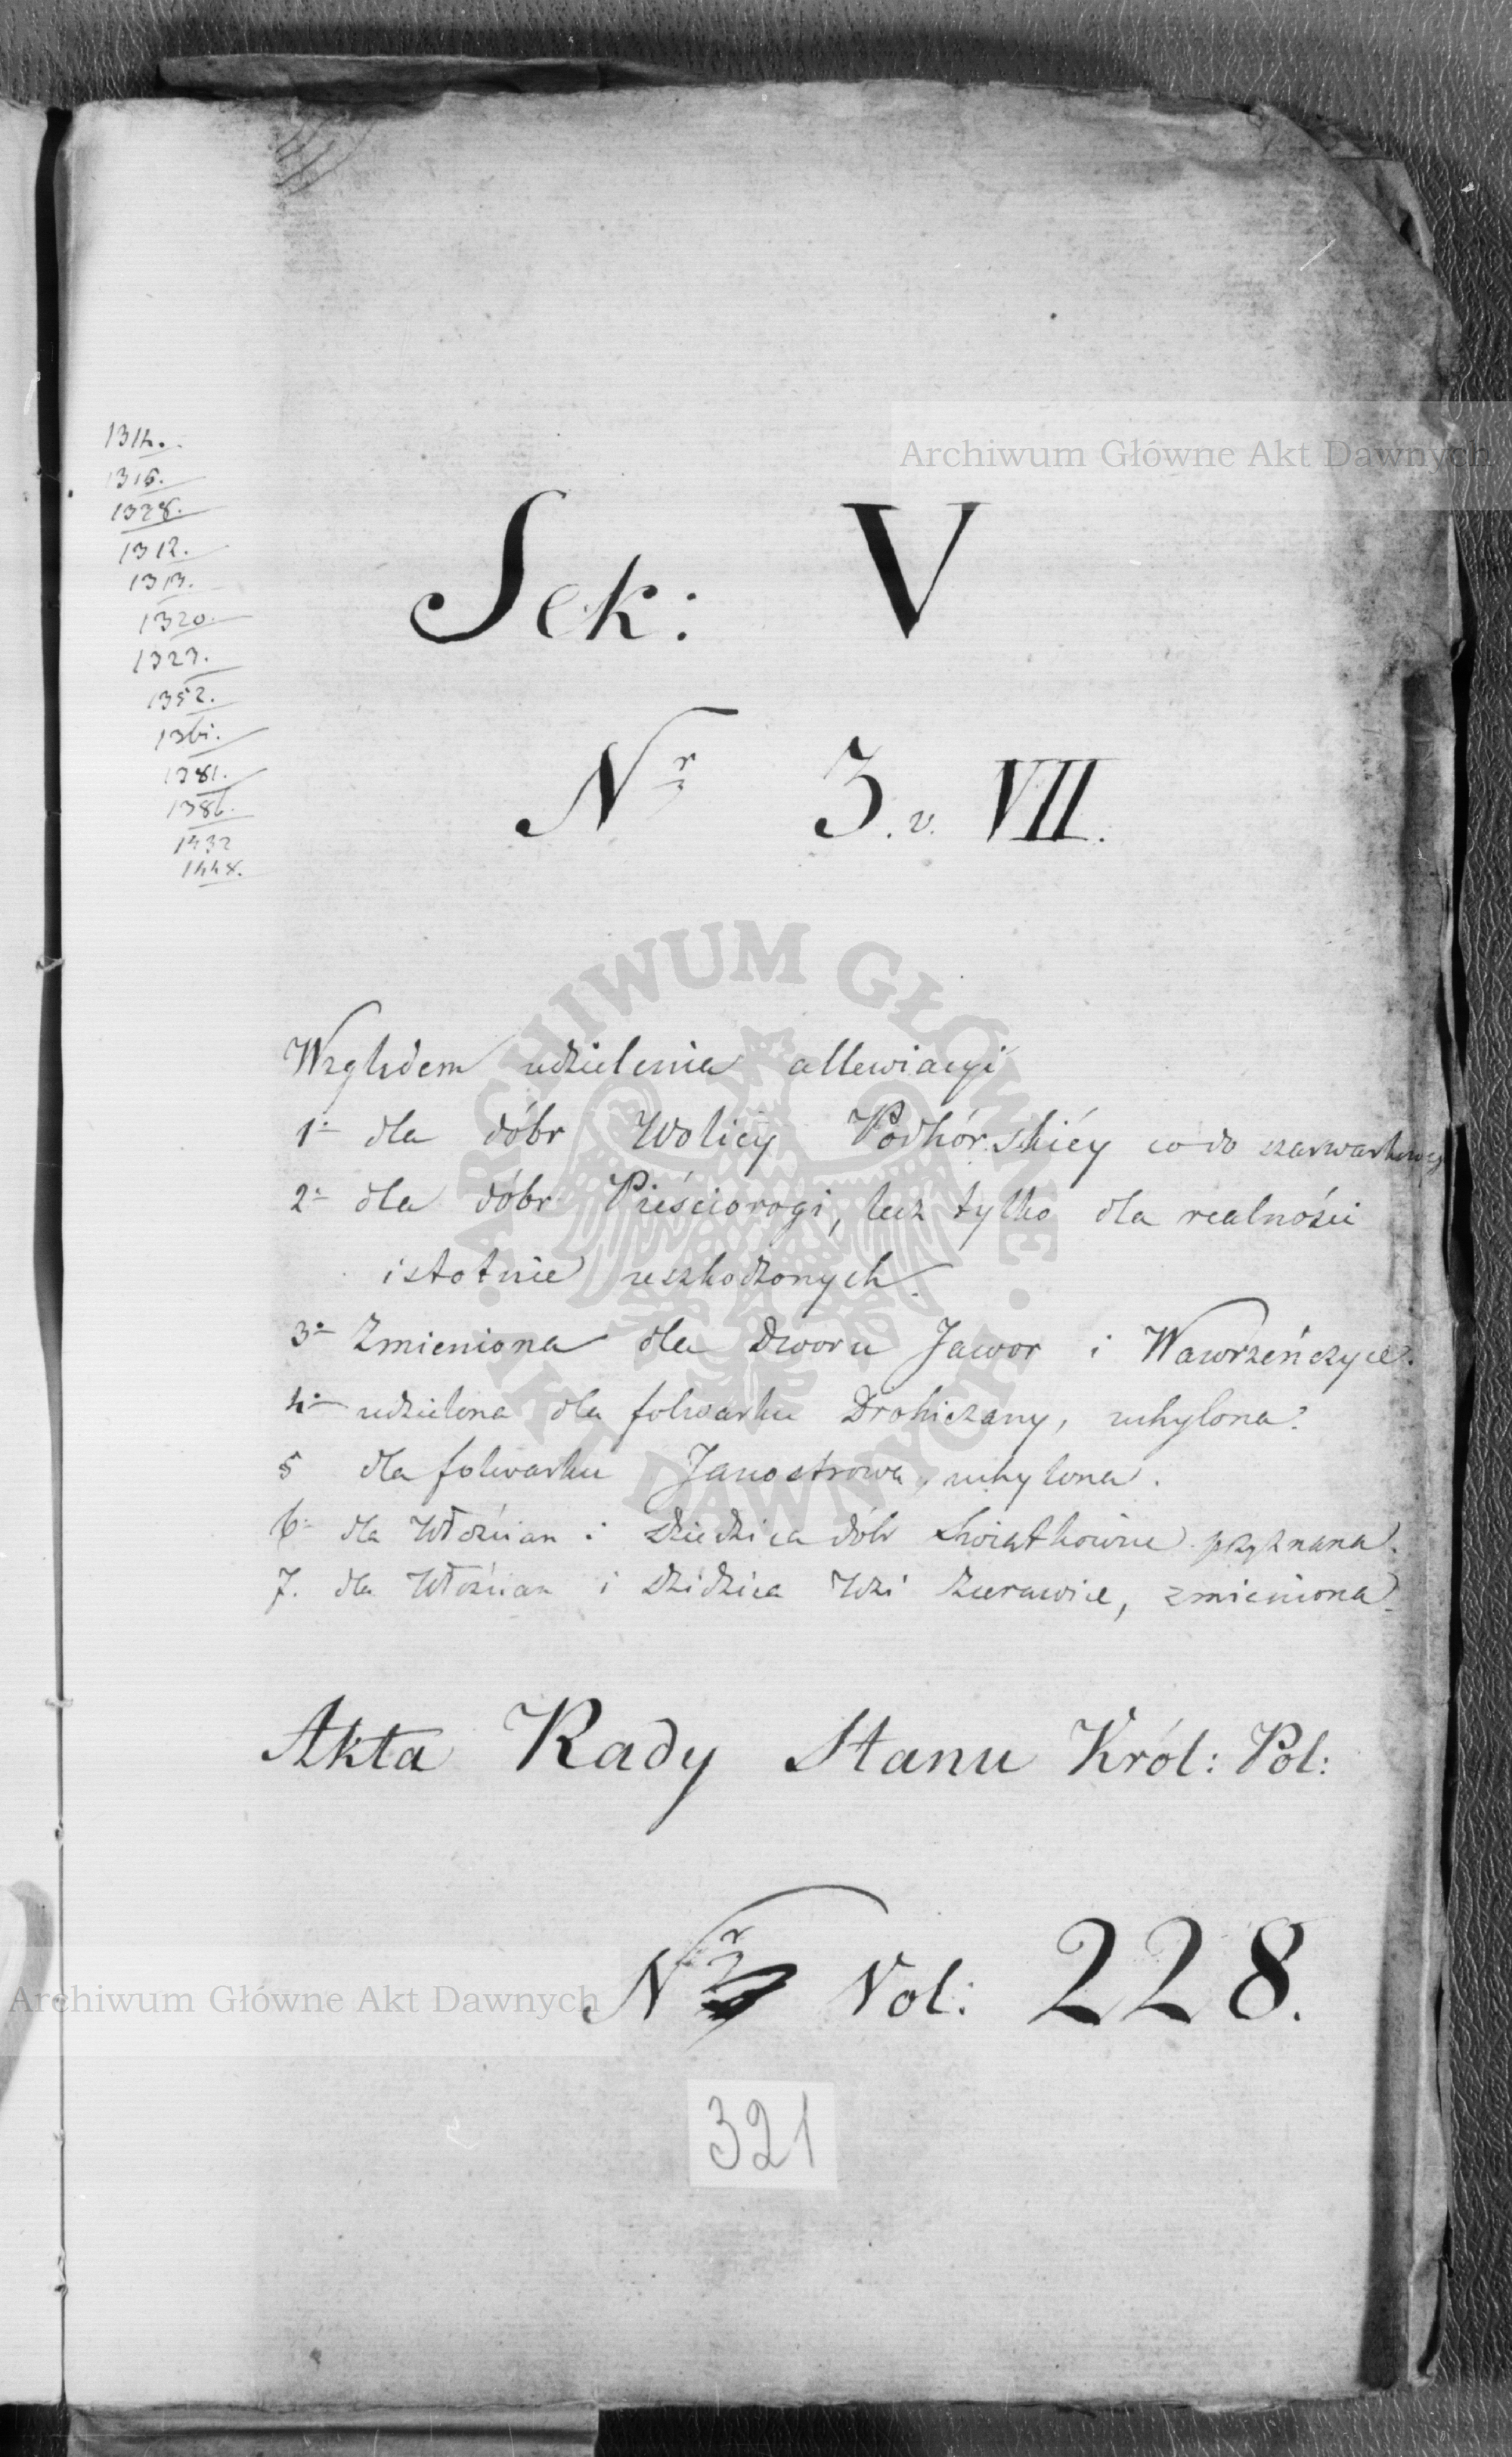 1314.
1316.
1328.
1312.
1313.
1320.
1323.
1352.
1361.
1381.
1386.
1432
1448.
Archiwum Główne Akt Dawnych
Sek: V
Nr 3. v. VII.
Względem udzielenia allewiacyi
1o dla dóbr Wolicy Podhórskiéy co do szarwarkowey
2o dla dóbr Pieścirogi, lecz tylko dla realności
istotnie uszkodzonych.
3o Zmieniona dla Dworu Jawor i Wawrzeńczyce.
4o udzielona dla folwarku Drohiczany, uchylona.
5 dla folwarku Janostrowa, uchylona.
6o dla Włościan i Dziedzica dóbr Świątkowice przyznana.
7. dla Włościan i Dziedzica Wsi Żurawice, zmieniona.
Akta Rady Stanu Król: Pol:
Nr Vol: 228.
Archiwum Główne Akt Dawnych
321
ARCHIWUM GŁÓWNE
AKT DAWNYCH